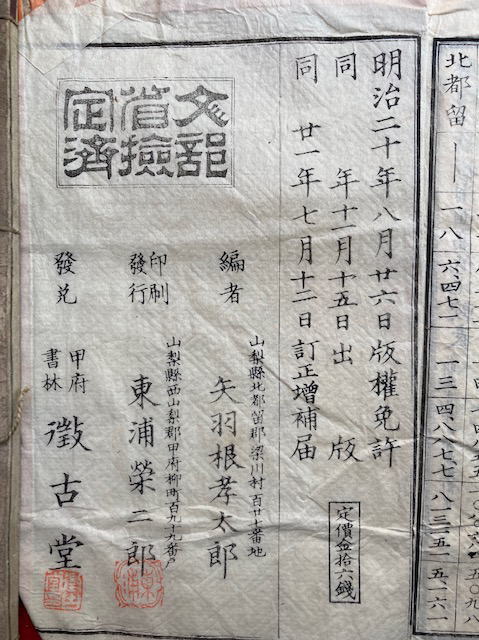 北都留
一
一八
六、四七二
一三
四、八八七七
八一三五一
五、一六一
明治二十年八月廿六日版權免許
同年十一月十五日出版
同廿一年七月十二日訂正增補届
定價金拾六錢
文部省檢定濟
山梨縣北都留郡梁川村百廿七番地
編者 矢羽根孝太郎
山梨縣西山梨郡甲府柳町百九十九番戶
印刷發行 東浦榮二郎
發兌 甲府書林 徴古堂